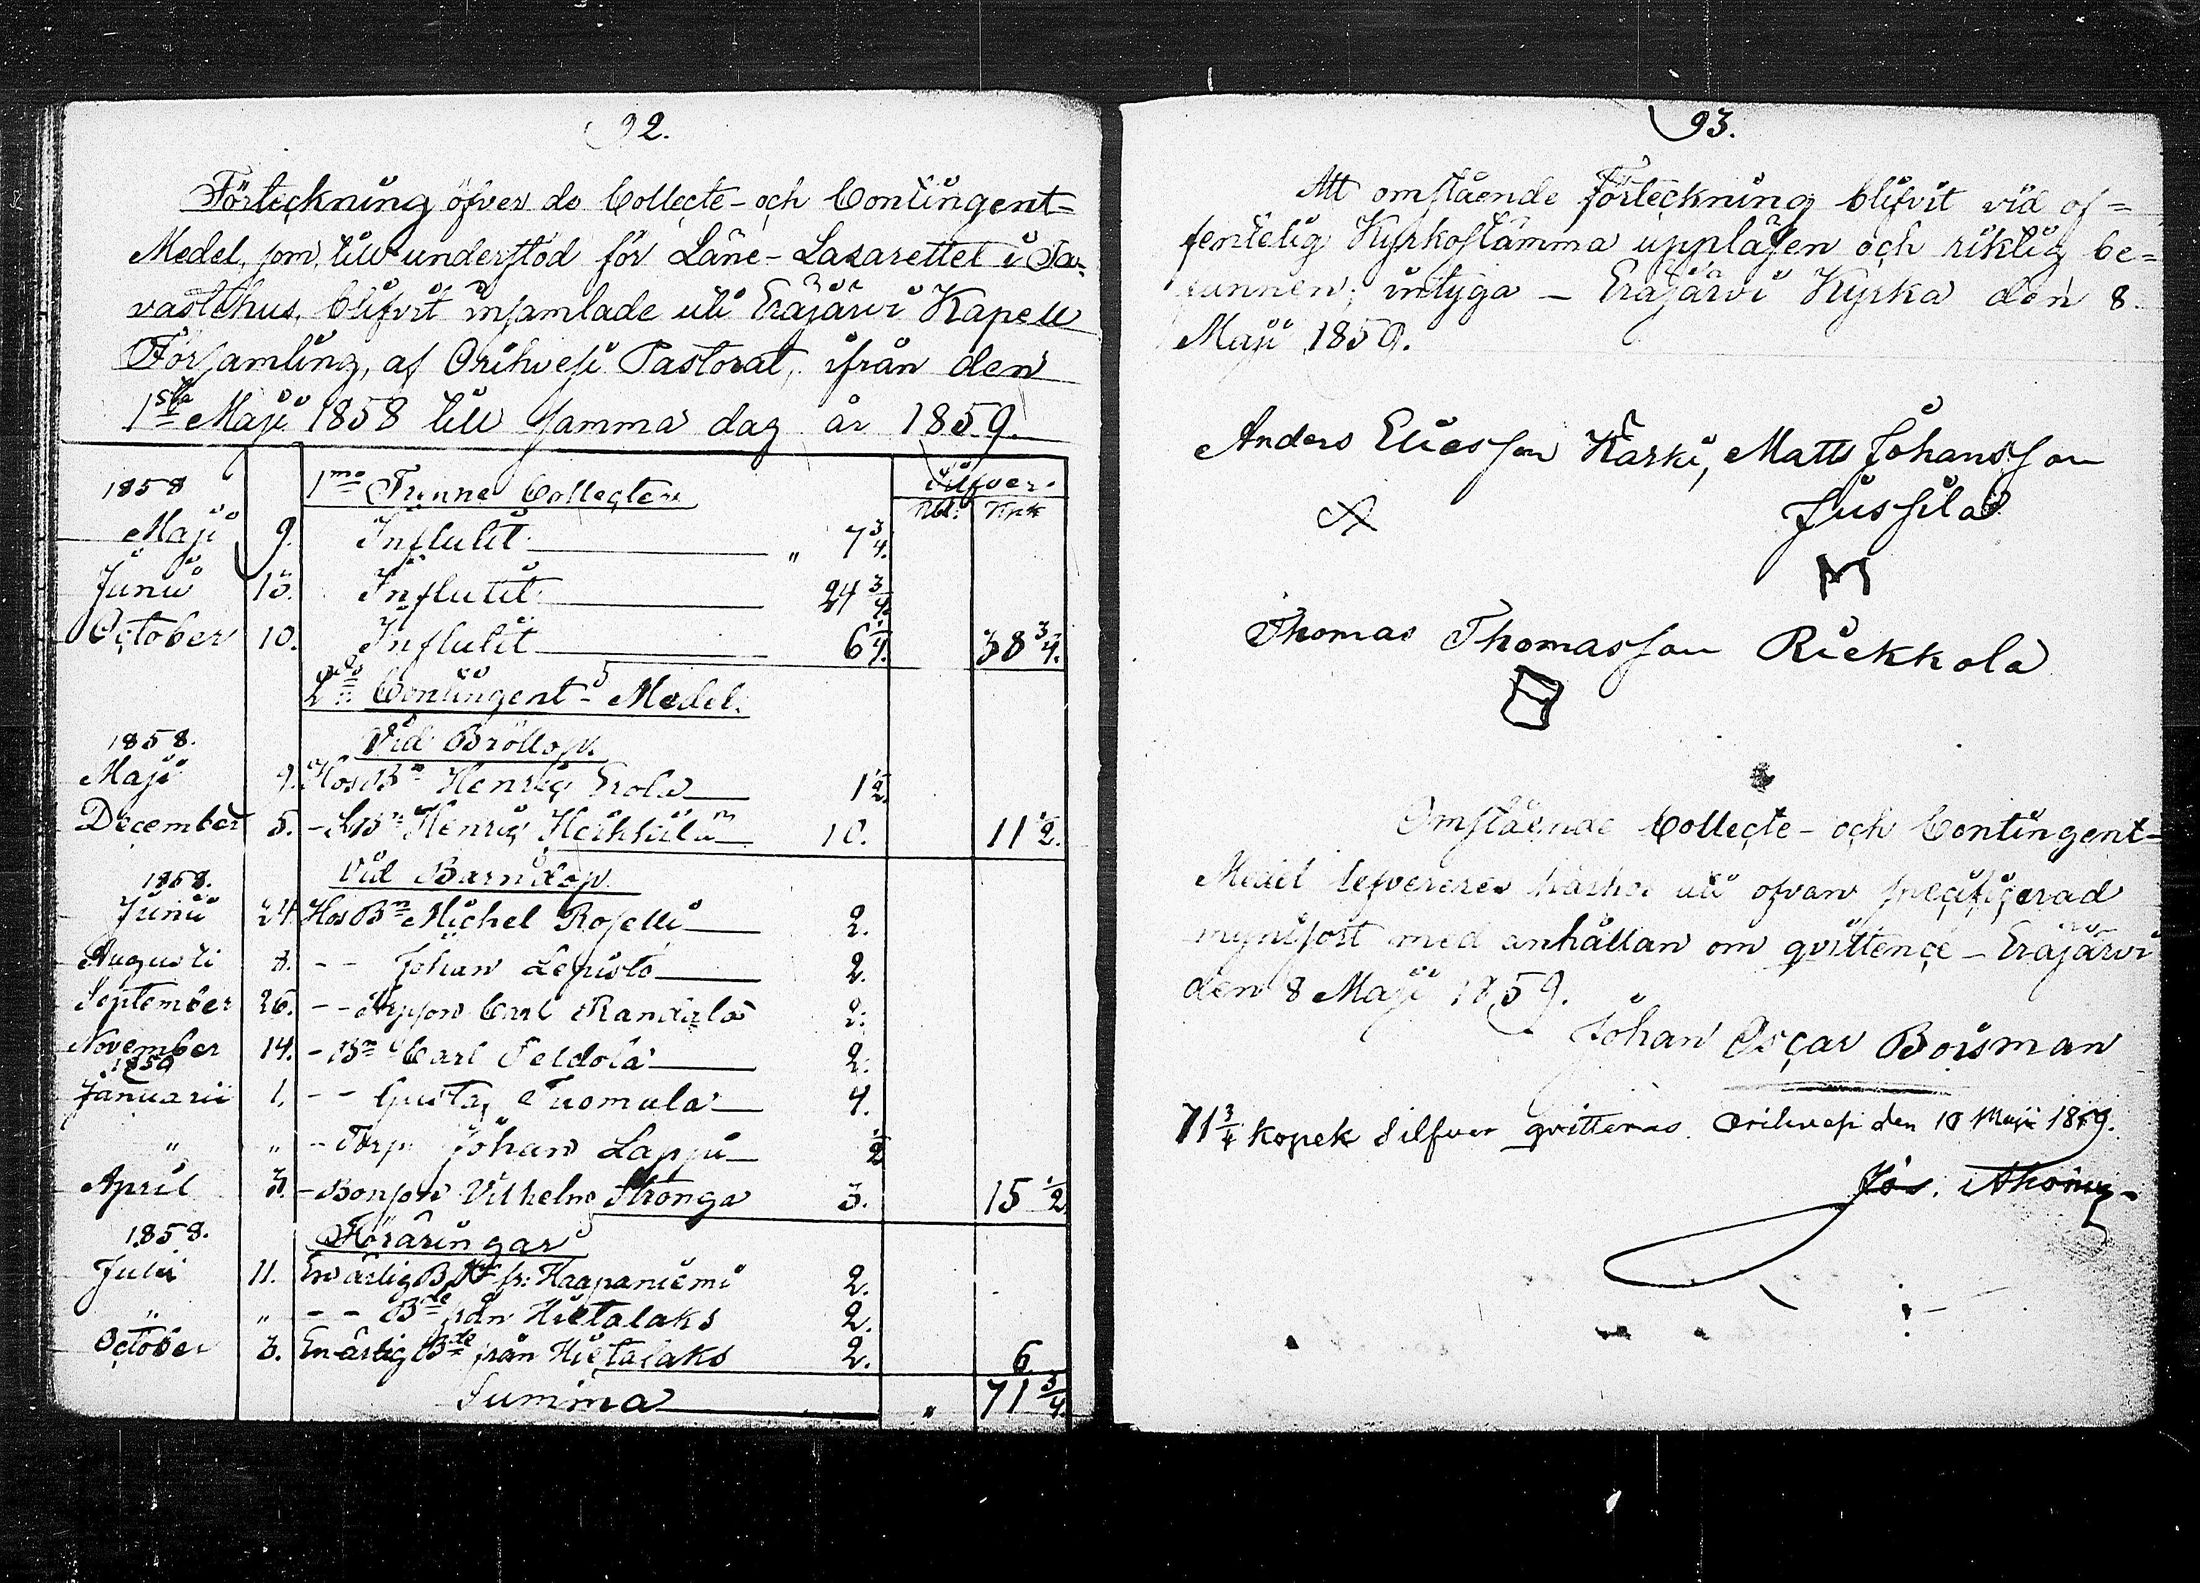 92.
Förteckning öfver de Collecte- och Contingent-
Medel, som till understöd för Läne-Lazarettet i Ta-
vastehus, blifvit insamlade uti Eräjärvi Kapell
Församling, af Orihvesi Pastorat, ifrån den
1sta Maji 1858 till samma dag år 1859.
1858 1mo Trenne Collecter Silfver.
Rbl. Kpk
Maji 9. Influtit " 7 3/4.
Junii 13. Influtit 24 3/4.
October 10. Influtit 6 1/4. 38 3/4.
2do Contingent-Medel.
1858. Vid Bröllop.
Maji 9. Hos Bn Henric Erola 1 1/2.
December 5. - Bn Henric Heikkilä 10. 11 1/2.
1858. Vid Barndop.
Junii 24. Hos Bn Michel Roselli 2.
Augusti 8. - - Johan Lepistö 2.
September 26. - - Carl Randala 2.
November 14. - Bn Carl Seldola 2.
1859
Januarii 1. - - Gustaf Tuomula 4.
" " - Torp. Johan Lappi 1/2
April 3. - Bonson Vilhelm Stronga 3. 15 1/2.
1858. Föräringar
Julii 11. En ärlig fr: Haapaniemi 2.
" " - - från Hietalaks 2.
October 3. En ärlig från Hietalaks 2. 6.
Summa " 71 3/4.
93.
Att omstående Förteckning blifvit vid of-
fentelig Kyrkostämma uppläsen och riktig be-
funnen; intyga - Eräjärvi Kyrka den 8.
Maji 1859.
Anders Eliasson Karki, Matts Johansson
Jussila
Thomas Thomasson Riekkola
Omstående Collecte- och Contingent-
Medel lefvereres härhos uti ofvan specificerad
myntsort med anhållan om qvittence - Eräjärvi
den 8 Maji 1859.
Johan Oscar Boisman
71 3/4 kopek Silfver qvitteras. Orihvesi den 10 Maji 1859.